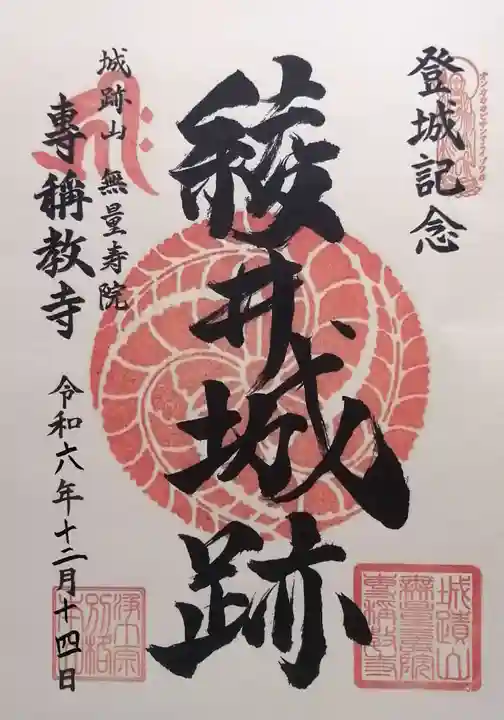 登城記念
綾井城跡
城跡山 無量寿院
專稱教寺
令和六年十二月十四日
城蹟山
無量壽院
專稱教寺
浄土宗
別格